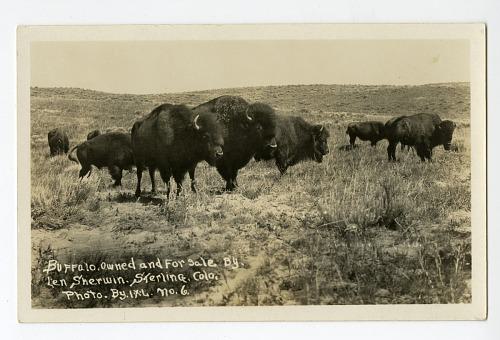 Buffalo. Owned and For Sale By.
Len Sherwin. Sterling. Colo.
Photo. By. IXL. No. 6.